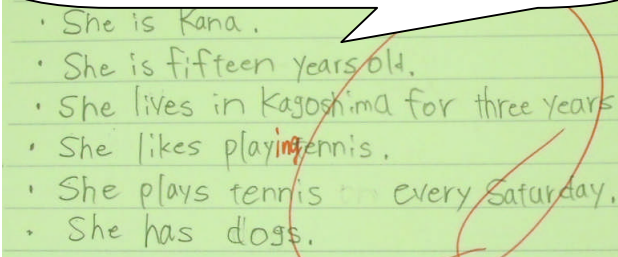 · She is Kana.
· She is fifteen years old.
· She lives in Kagoshima for three years
· She likes playing tennis.
· She plays tennis every Saturday.
· She has dogs.